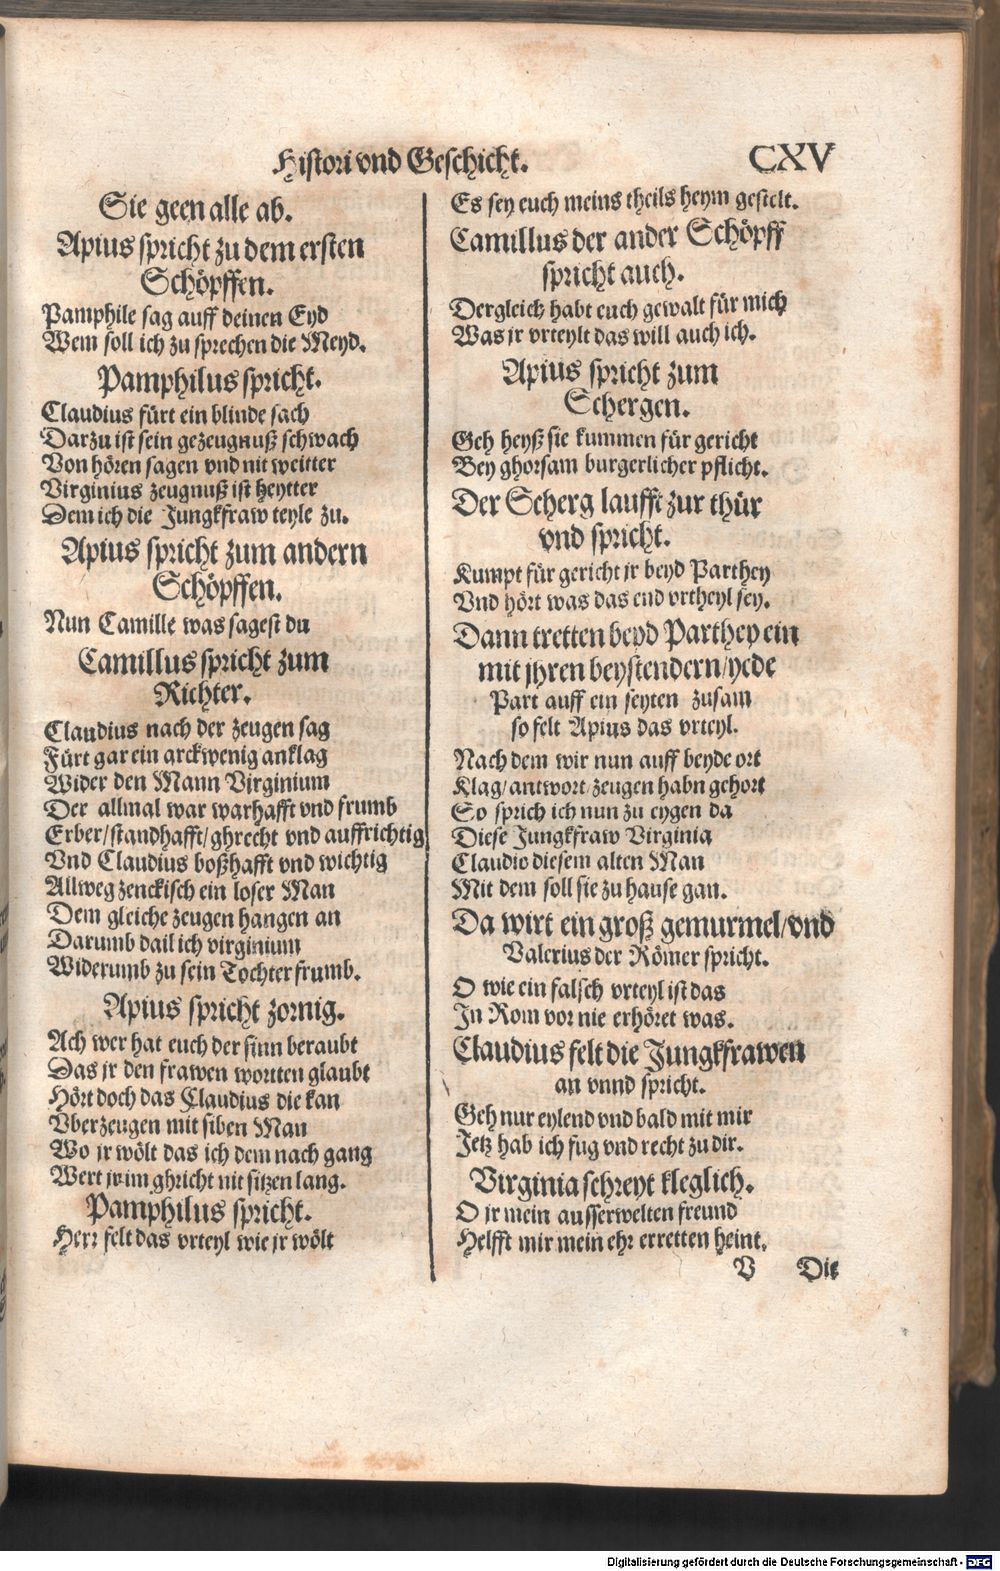 Histori vnd Geschicht. CXV
Sie geen alle ab.
Apius spricht zu dem ersten
Schöpffen.
Pamphile sag auff deinen Eyd
Wem soll ich zu sprechen die Meyd.
Pamphilus spricht.
Claudius fürt ein blinde sach
Darzu ist sein gezeugnuß schwach
Von hören sagen vnd nit weitter
Virginius zeugnuß ist heytter
Dem ich die Jungkfraw teyle zu.
Apius spricht zum andern
Schöpffen.
Nun Camille was sagest du
Camillus spricht zum
Richter.
Claudius nach der zeugen sag
Fürt gar ein arckwenig anklag
Wider den Mann Virginium
Der allmal war warhafft vnd frumb
Erber/standhafft/ghrecht vnd auffrichtig
Vnd Claudius boßhafft vnd wichtig
Allweg zenckisch ein loser Man
Dem gleiche zeugen hangen an
Darumb dail ich virginium
Widerumb zu sein Tochter frumb.
Apius spricht zornig.
Ach wer hat euch der sinn beraubt
Das jr den frawen wortten glaubt
Hört doch das Claudius die kan
Vberzeugen mit siben Man
Wo jr wölt das ich dem nach gang
Wert jr im ghricht nit sitzen lang.
Pamphilus spricht.
Herr felt das vrteyl wie jr wölt
Es sey euch meins theils heym gestelt.
Camillus der ander Schöpff
spricht auch.
Dergleich habt euch gewalt für mich
Was jr vrteylt das will auch ich.
Apius spricht zum
Schergen.
Geh heyß sie kummen für gericht
Bey ghorsam burgerlicher pflicht.
Der Scherg laufft zur thür
vnd spricht.
Kumpt für gericht jr beyd Parthey
Vnd hört was das end vrtheyl sey.
Dann tretten beyd Parthey ein
mit jhren beystendern/yede
Part auff ein seyten zusam
so felt Apius das vrteyl.
Nach dem wir nun auff beyde ort
Klag/antwort/zeugen habn gehort
So sprich ich nun zu eygen da
Diese Jungkfraw Virginia
Claudio diesem alten Man
Mit dem soll sie zu hause gan.
Da wirt ein groß gemurmel/vnd
Valerius der Römer spricht.
O wie ein falsch vrteyl ist das
In Rom vor nie erhöret was.
Claudius felt die Jungkfrawen
an vnnd spricht.
Geh nur eylend vnd bald mit mir
Jetz hab ich fug vnd recht zu dir.
Virginia schreyt kleglich.
O jr mein ausserwelten freund
Helfft mir mein ehr erretten heint.
V Die
Digitalisierung gefördert durch die Deutsche Forschungsgemeinschaft - DFG